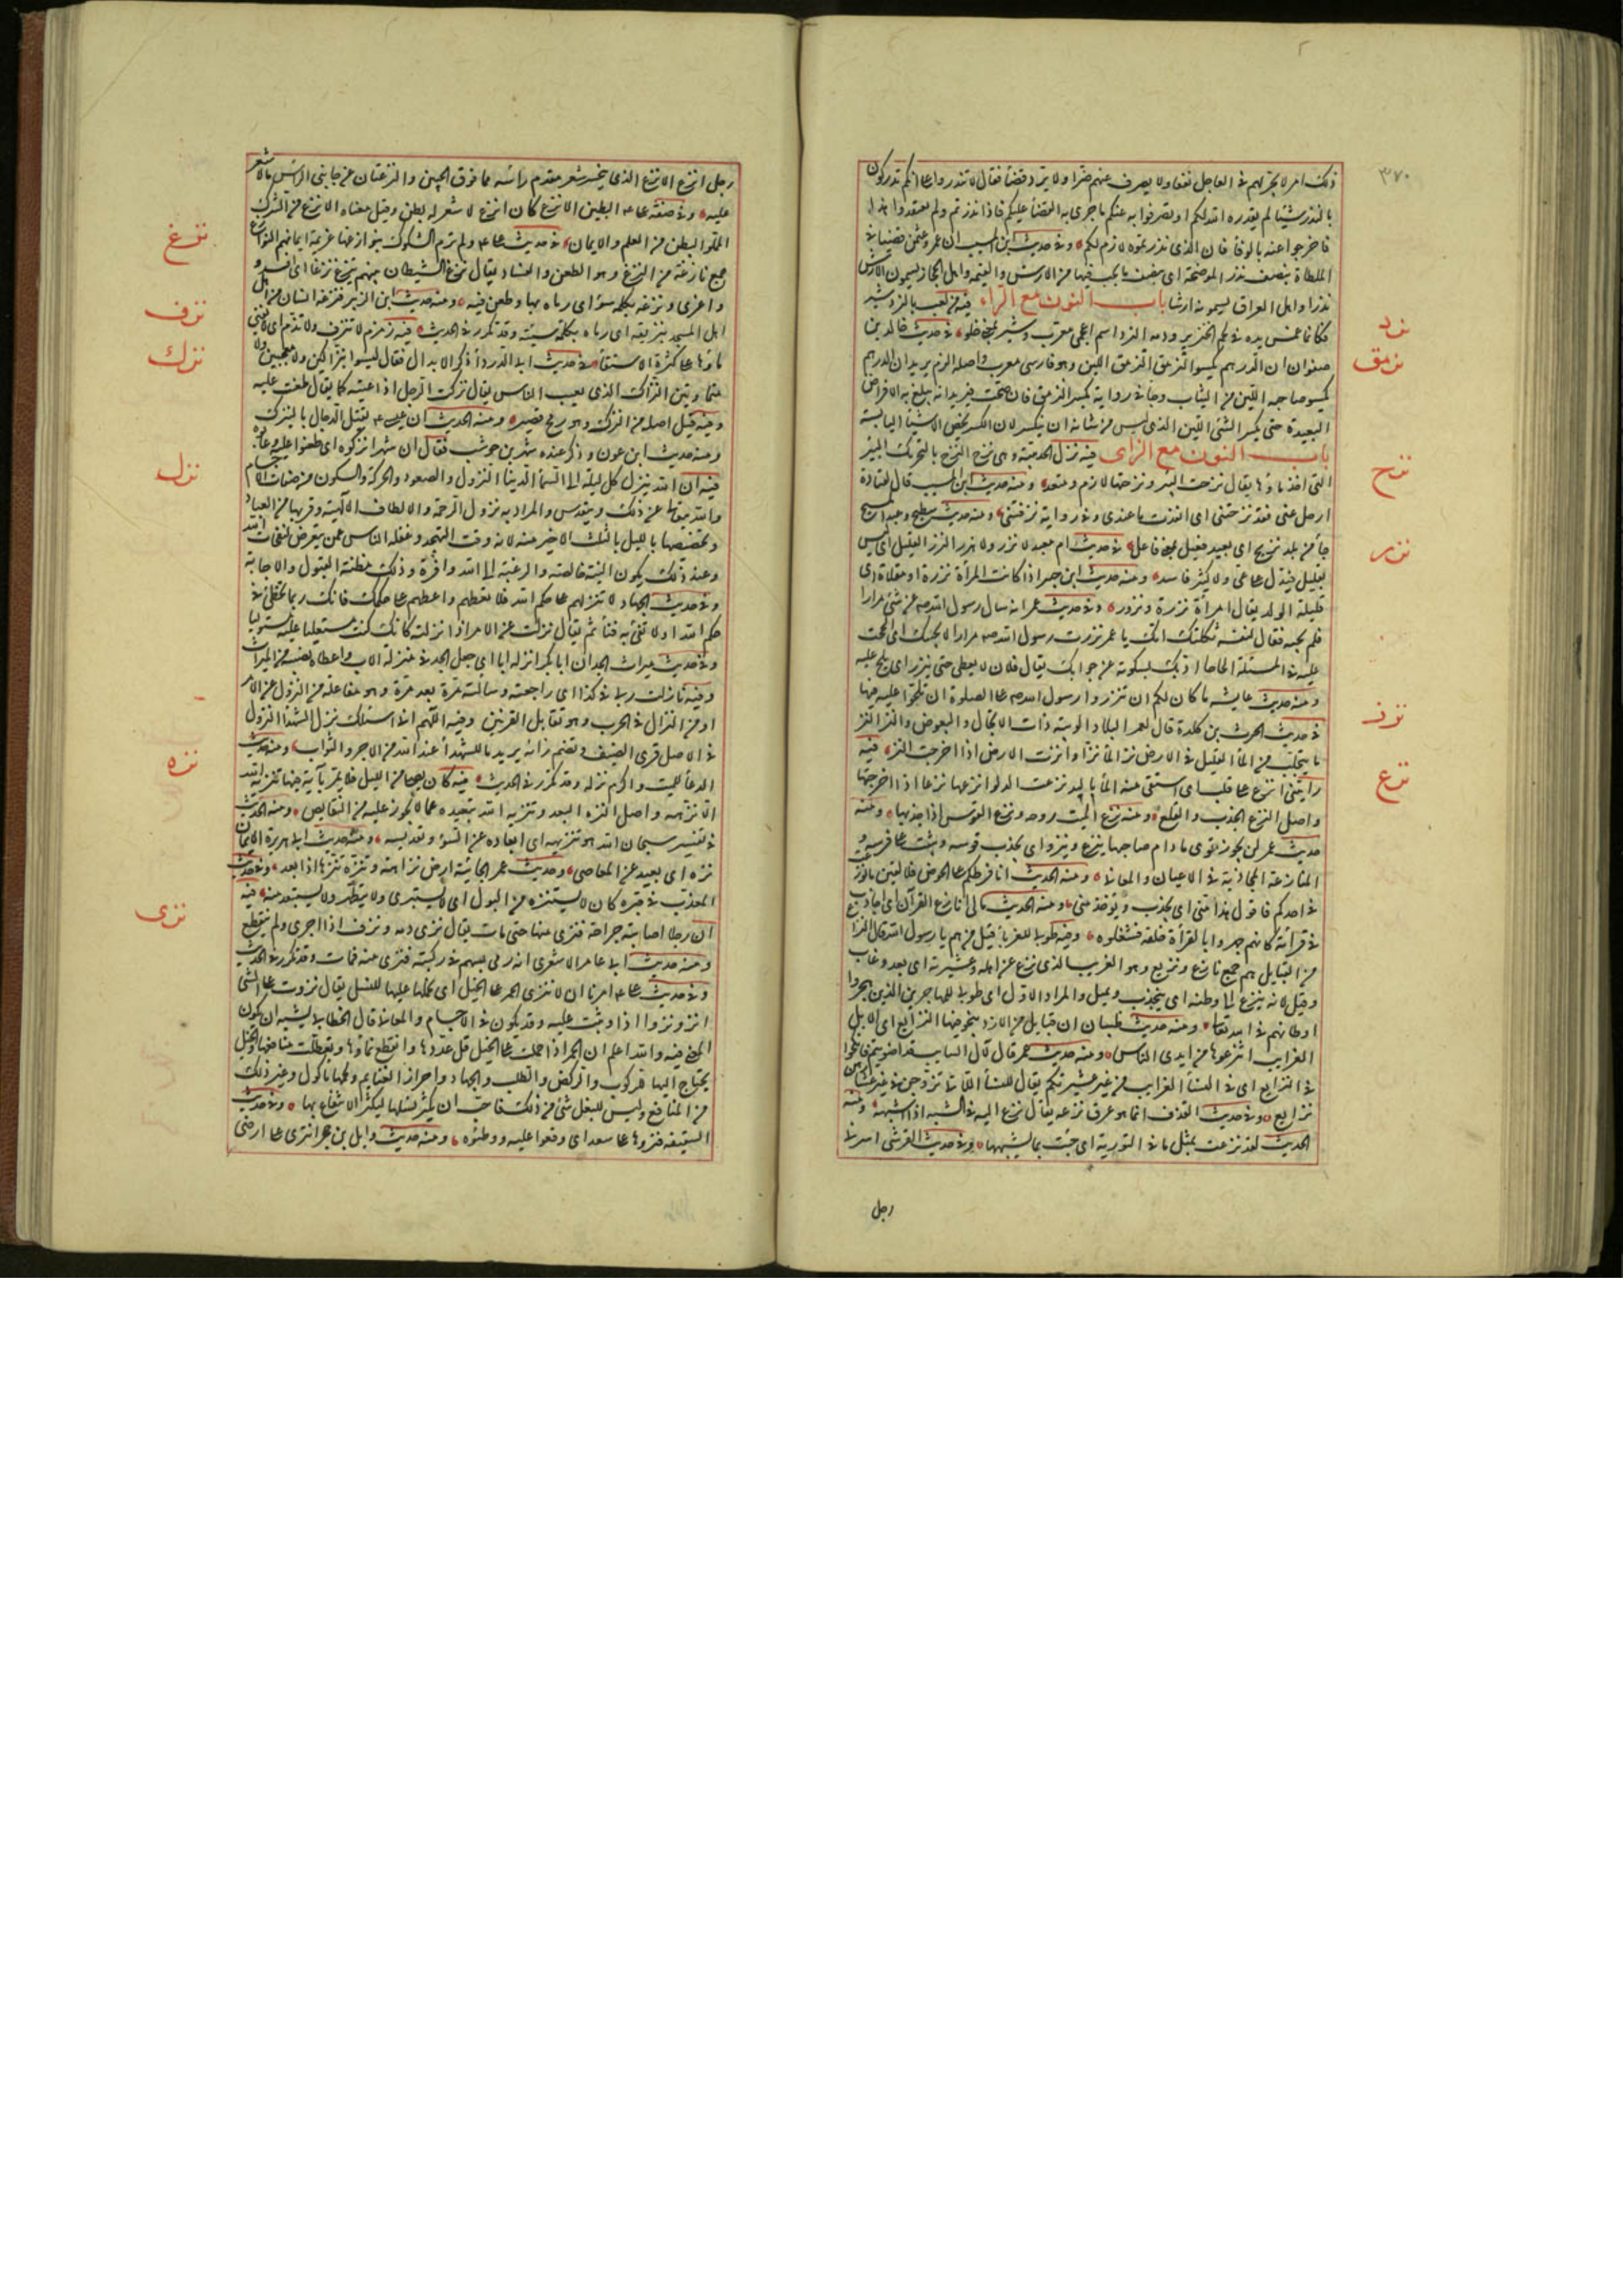 ٣٧٠
ذلك امر لا يجر لهم في العاجل نفعا ولا يصرف عنهم ضرا ولا يرد قضاء فقال لا تنذروا على انكم تدركون
بالنذر شيئا لم يقدره الله لكم او تصرفوا به عنكم ما جرى به القضاء عليكم فاذا نذرتم ولم تعتقدوا هذا
فاخرجوا عنه بالوفاء فان الذي نذرتموه لازم لكم وفي حديث ابن المسيب ان عمر وعثمن قضيا في
الملطاة بنصف نذر الموضحة اي بنصف ما يجب فيها من الارش والقيمة واهل الحجاز يسمون الارش
نذرا واهل العراق يسمونه ارشا باب النون مع الراء فيه من لعب بالنردشير
فكانما غمس يده في لحم الخنزير ودمه النرد اسم اعجمي معرب وشير بمعنى حلو في حديث خالد بن
صفوان ان الدرهم يكسو النرمق النرمق اللين وهو فارسي معرب واصله النرم يريد ان الدرهم
يكسو صاحبه اللين من الثياب وجاء في رواية يكسر النرمق فان صحت فيريد انه يبلغ به الاغراض
البعيدة حتى يكسر الشئ اللين الذي ليس من شانه ان ينكسر لان الكسر يخص الاشياء اليابسة
باب النون مع الزاى فيه نزل الحديبية وهي نزح النزح بالتحريك البئر
التي اخذ ماؤها يقال نزحت البئر ونزحتها لازم ومتعد ومنه حديث ابن المسيب قال لقتادة
ارحل عني فقد نزحتني اي انفدت ما عندي وفي رواية نزفتني ومنه حديث سطيح وعبد المسيح
جاء من بلد نزيح اي بعيد فعيل بمعنى فاعل في حديث ام معبد لا نزر ولا هذر النزر القليل اي ليس
بقليل فيدل على عي ولا كثير فاسد ومنه حديث ابن جبير اذا كانت المرأة نزرة او مقلاة اي
قليلة الولد يقال امرأة نزرة ونزور وفي حديث عمر انه سال رسول الله صه عن شئ مرارا
فلم يجبه فقال لنفسه ثكلتك امك يا عمر نزرت رسول الله صه مرارا لا يجيبك اي الححت
عليه في المسئلة الحاحا ادبك بسكوته عن جوابك يقال فلان لا يعطي حتى ينزر اي يلح عليه
ومنه حديث عايشة ما كان لكم ان تنزروا رسول الله صه على الصلوة ان تلحوا عليه فيها
في حديث الحرث بن كلدة قال لعمر البلاد الوبئة ذات الانجال والبعوض والنز النز
ما يتحلب من الماء القليل في الارض نز الماء نزا وانزت الارض اذا اخرجت النز فيه
رايتني انزع على قليب اي استقى منه الماء باليد نزعت الدلو انزعها نزعا اذا اخرجتها
واصل النزع الجذب والقلع ومنه نزع الميت روحه ونزع القوس اذا جذبها ومنه
حديث عمر لن يخور قوى ما دام صاحبها ينزع وينزو اي يجذب قوسه ويثب على فرسه
المنازعة المجاذبة في الاعيان والمعاني ومنه الحديث انا فرطكم على الحوض فلالفين ما نوزعت
في احدكم فاقول هذا مني اي يجذب ويؤخذ مني ومنه الحديث مالي انازع القرآن اي اجاذب
في قرأته كانهم جهروا بالقرأة خلفه فشغلوه وفيه طوبى للغرباء قيل من هم يا رسول الله قال النزاع
من القبايل هم جمع نازع ونزيع وهو الغريب الذي نزع عن اهله وعشيرته اي بعد وغاب
وقيل لانه ينزع الى وطنه اي ينجذب ويميل والمراد الاول اي طوبى للمهاجرين الذين هجروا
اوطانهم في الله تعالى ومنه حديث ظبيان ان قبايل من الازد نتجوا فيها النزايع اي الابل
الغرايب انتزعوها من ايدي الناس ومنه حديث عمر قال لآل السايب قد اضويتم فانكحوا
في النزايع اي في النساء الغرايب من غير عشيرتكم يقال للنساء اللاتي تزوجن في غير عشايرهن
نزايع وفي حديث القذف انما هو عرق نزعه يقال نزع اليه في الشبه اذا اشبهه ومنه
الحديث لقد نزعت بمثل ما في التورية اي جئت بما يشبهها وفي حديث القرشي اسرني
رجل
نرد
نرمق
نزح
نزر
نزز
نزع
رجل انزع الانزع الذي ينحسر شعر مقدم راسه مما فوق الجبين والنزعتان من جانبي الراس مالا شعر
عليه وفي صفة على ع م البطين الانزع كان انزع لا شعر له بطن وقيل معناه الانزع من الشرك
المملو البطن من العلم والايمان في حديث على ع م ولم ترم الشكوك بنوازغها عزيمة ايمانهم النوازغ
جمع نازغة من النزغ وهو الطعن والفساد يقال نزغ الشيطان بينهم ينزغ نزغا اي افسد
واغرى ونزغه بكلمة سوء اي رماه بها وطعن فيه ومنه حديث ابن الزبير فنزغه انسان من اهل
اهل المسجد بنزيغة اي رماه بكلمة سيئة وقد تكرر في الحديث فيه زمزم لا تنزف ولا تذم اي لا يفنى
ماؤها على كثرة الاستقاء في حديث ابي الدرداء ذكر الابدال فقال ليسوا بنزاكين ولا معجبين ولا
متماوتين النزاك الذي يعيب الناس يقال نزكت الرجل اذا عبته كما يقال طعنت عليه
وفيه قيل اصله من النيزك وهو رمح قصير ومنه الحديث ان عيسى ع م يقتل الدجال بالنيزك
ومنه حديث ابن عون وذكر عنده شهر بن حوشب فقال ان شهرا نزكوه اي طعنوا عليه وعابوه
فيه ان الله ينزل كل ليلة الى السماء الدنيا النزول والصعود والحركة والسكون من صفات الاجسام
والله يتعالى عن ذلك ويتقدس والمراد به نزول الرحمة والالطاف الالهية وقربها من العباد
وتخصيصها بالليل بالثلث الاخير منه لانه وقت التهجد وغفلة الناس عمن يتعرض لنفحات الله
وعند ذلك يكون النية خالصة والرغبة الى الله وافرة وذلك مظنة القبول والاجابة
وفي حديث الجهاد لا تنزلهم على حكم الله فلا تعطهم واعطهم على حكمك فانك ربما تخطئ في
حكم الله او لا تفي به فتأثم يقال نزلت عن الامر اذا نزلته كانك كنت مستعليا عليه مستوليا
وفي حديث ميراث الجد ان ابا بكر انزله ابا اي جعل الجد في منزلة الاب واعطاه نصيبه من الميراث
وفيه نازلت ربي في كذا اي راجعته وسالته مرة بعد مرة وهو مفاعلة من النزول عن الامر
او من النزال في الحرب وهو تقابل القرنين وفيه اللهم اني اسئلك نزل الشهداء النزل
في الاصل قرى الضيف وتضم زاؤه يريد ما للشهداء عند الله من الاجر والثواب ومنه حديث
الدعاء للميت واكرم نزله وقد تكرر في الحديث فيه كان يصلى من الليل فلا يمر بآية فيها تنزيه الله
الا نزهه واصل النزه البعد وتنزيه الله تبعيده عما لا يجوز عليه من النقايص ومنه الحديث
في تفسير سبحان الله هو تنزيهه اي ابعاده عن السوء وتقديسه ومنه حديث ابي هريرة الايمان
نزه اي بعيد عن المعاصي وحديث عمر الجابية ارض نزهة وتنزه تنزها اذا بعد وفي حديث
المعذب في قبره كان لا يستنزه من البول اي لا يستبرئ ولا يتطهر ولا يستبعد منه فيه
ان رجلا اصابته جراحة فنزى منها حتى مات يقال نزى دمه ونزف اذا جرى ولم ينقطع
ومنه حديث ابي عامر الاشعري انه رمى بسهم في ركبته فنزى منه فمات وقد تكرر في الحديث
وفي حديث على ع م امرنا ان لا ننزي الحمر على الخيل اي نحملها عليها للنسل يقال نزوت على الشئ
انزو نزوا اذا وثبت عليه وقد يكون في الاجسام والمعاني قال الخطابي يشبه ان يكون
المعنى فيه والله اعلم ان الحمر اذا حملت على الخيل قل عددها وانقطع نماؤها وتعطلت منافعها والخيل
يحتاج اليها للركوب والركض والطلب والجهاد واحراز الغنايم ولحمها ماكول وغير ذلك
من المنافع وليس للبغل شئ من ذلك فاحب ان يكثر نسلها ليكثر الانتفاع بها وفي حديث
السقيفة فنزوا على سعد اي وقعوا عليه ووطئوه ومنه حديث وايل بن حجر انتزى على ارضى
نزغ
نزف
نزك
نزل
نزه
نزى